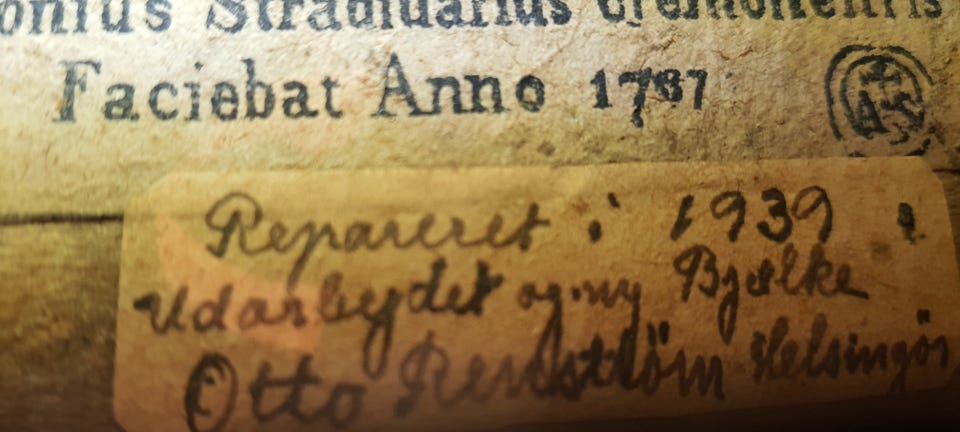 onius Stradiuarius Cremonenfis
Faciebat Anno 1787
A S
Repareret i 1939.
Udarbejdet og ny Bjælke
Otto Renström Helsingör